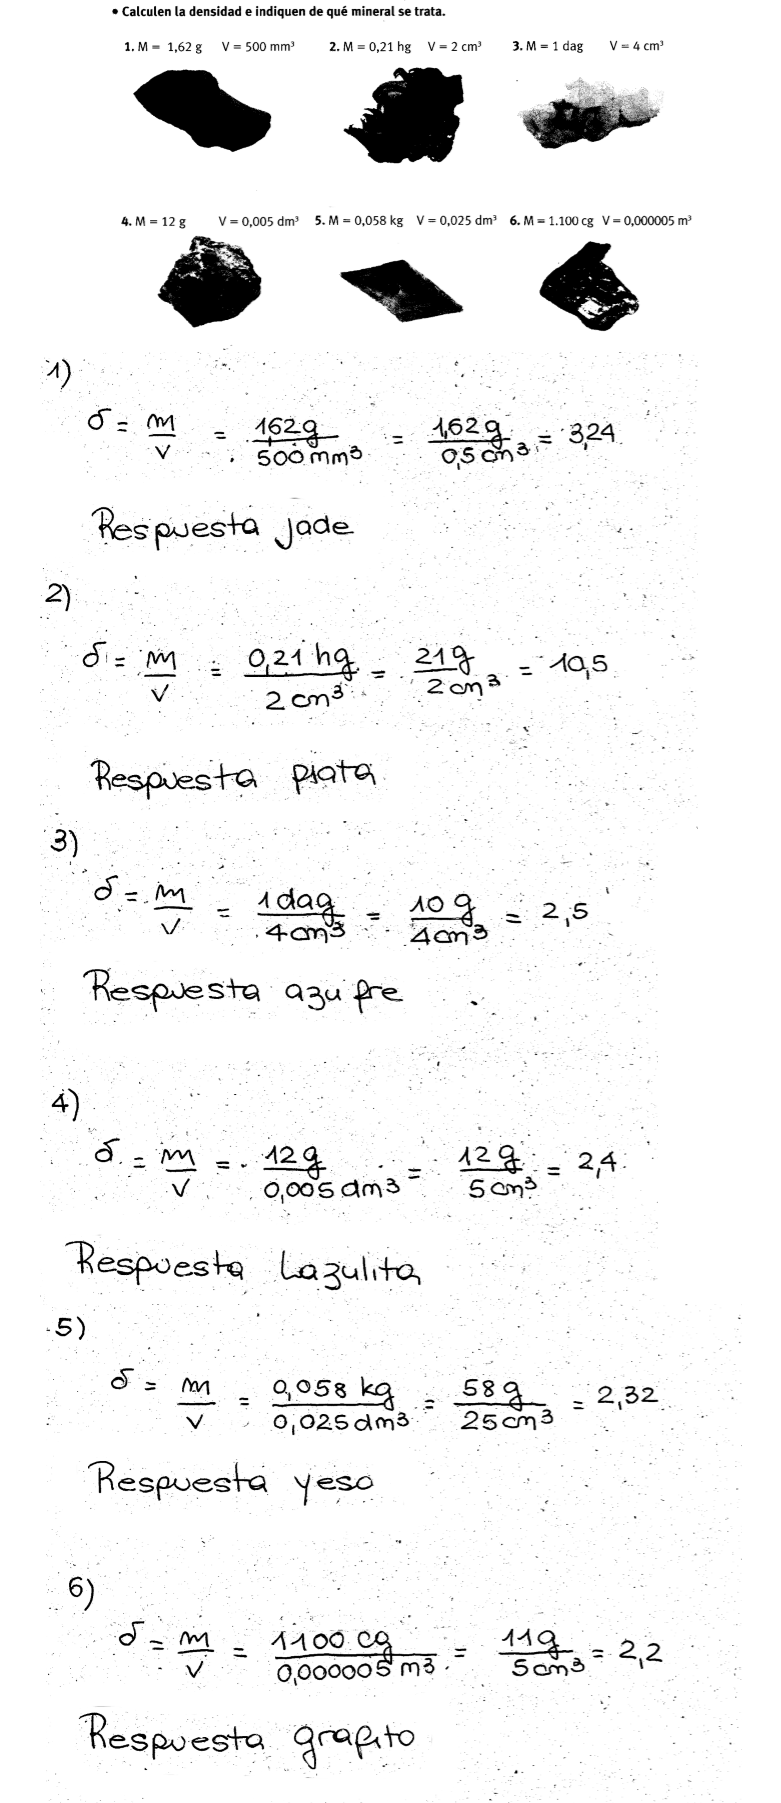 • Calculen la densidad e indiquen de qué mineral se trata.
1. M = 1,62 g V = 500 mm³ 2. M = 0,21 hg V = 2 cm³ 3. M = 1 dag V = 4 cm³
4. M = 12 g V = 0,005 dm³ 5. M = 0,058 kg V = 0,025 dm³ 6. M = 1.100 cg V = 0,000005 m³
1)
δ = m/v = 1,62g/500 mm³ = 1,62g/0,5 cm³ = 3,24
Respuesta jade
2)
δ = m/v = 0,21 hg/2 cm³ = 21g/2 cm³ = 10,5
Respuesta plata
3)
δ = m/v = 1 dag/4 cm³ = 10 g/4 cm³ = 2,5
Respuesta azufre
4)
δ = m/v = 12g/0,005 dm³ = 12g/5 cm³ = 2,4
Respuesta Lazulita
5)
δ = m/v = 0,058 kg/0,025 dm³ = 58g/25 cm³ = 2,32
Respuesta yeso
6)
δ = m/v = 1100 cg/0,000005 m³ = 11g/5 cm³ = 2,2
Respuesta grafito